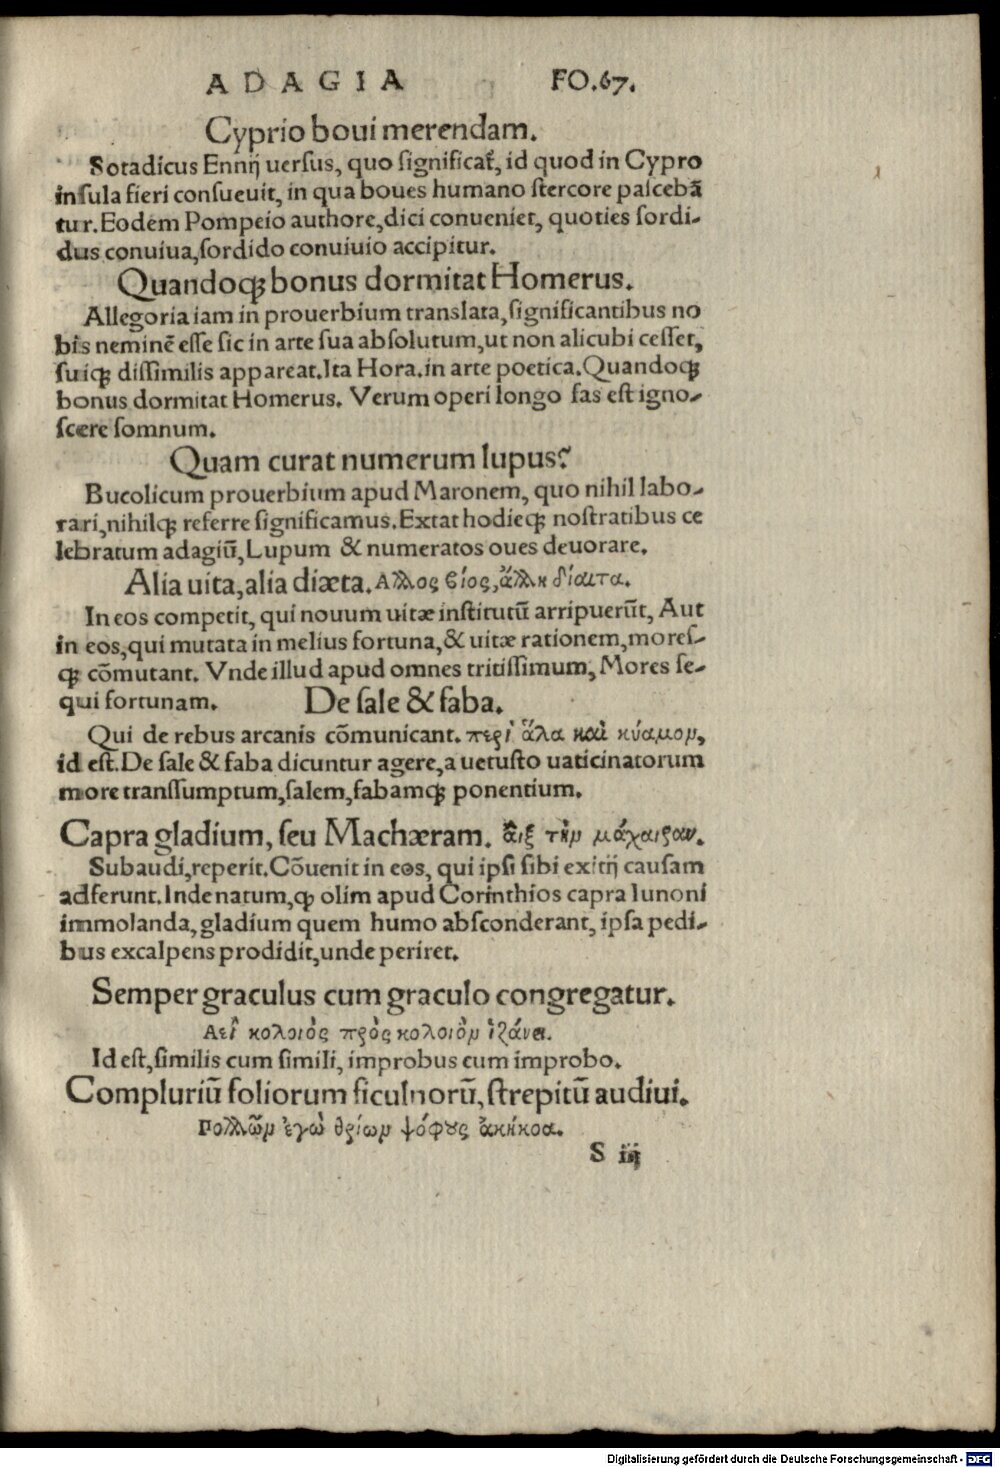 ADAGIA FO.67.
Cyprio boui merendam.
Sotadicus Ennij uersus, quo significat̃, id quod in Cypro
insula fieri consueuit, in qua boues humano stercore pascebã
tur. Eodem Pompeio authore, dici conueniet, quoties sordi-
dus conuiua, sordido conuiuio accipitur.
Quandoq; bonus dormitat Homerus.
Allegoria iam in prouerbium translata, significantibus no
bis neminẽ esse sic in arte sua absolutum, ut non alicubi cesset,
suiq; dissimilis appareat. Ita Hora. in arte poetica. Quandoq;
bonus dormitat Homerus. Verum operi longo fas est igno-
scere somnum.
Quam curat numerum lupus?
Bucolicum prouerbium apud Maronem, quo nihil labo-
rari, nihilq; referre significamus. Extat hodieq; nostratibus ce
lebratum adagiũ, Lupum & numeratos oues deuorare.
Alia uita, alia diæta. Αλλος βίος, ἄλλη δίαιτα.
In eos competit, qui nouum uitæ institutũ arripuerũt, Aut
in eos, qui mutata in melius fortuna, & uitæ rationem, mores-
q; cõmutant. Vnde illud apud omnes tritissimum, Mores se-
qui fortunam. De sale & faba.
Qui de rebus arcanis cõmunicant. περὶ ἅλα καὶ κύαμον,
id est. De sale & faba dicuntur agere, a uetusto uaticinatorum
more transsumptum, salem, fabamq; ponentium.
Capra gladium, seu Machæram. ἂιξ τὴν μάχαιραν.
Subaudi, reperit. Cõuenit in eos, qui ipsi sibi exitij causam
adferunt. Inde natum, q̃ olim apud Corinthios capra Iunoni
immolanda, gladium quem humo absconderant, ipsa pedi-
bus excalpens prodidit, unde periret.
Semper graculus cum graculo congregatur.
Αεὶ κολοιὸς πρὸς κολοιὸν ἱζάνει.
Id est, similis cum simili, improbus cum improbo.
Compluriũ foliorum ficulnorũ, strepitũ audiui.
Πολλῶν ἐγὼ θρίων ψόφους ἀκήκοα.
S iij
Digitalisierung gefördert durch die Deutsche Forschungsgemeinschaft - DFG